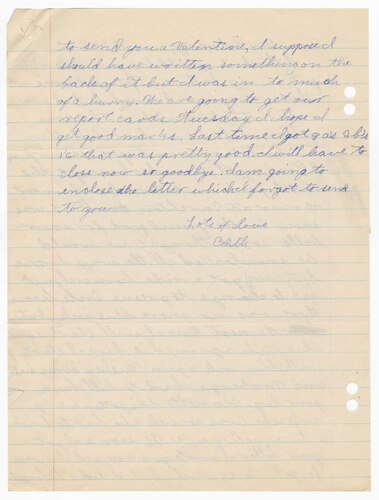 to send you a Valentine, I suppose I
should have written something on the
back of it but I was in to much
of a hurry. We are going to get our
report cards Tuesday I hope I
get good marks. Last time I got
that was pretty good. I will have to
close now so goodbye. I am going to
enclose the letter which I forgot to send
to you
Lots of Love
Edith